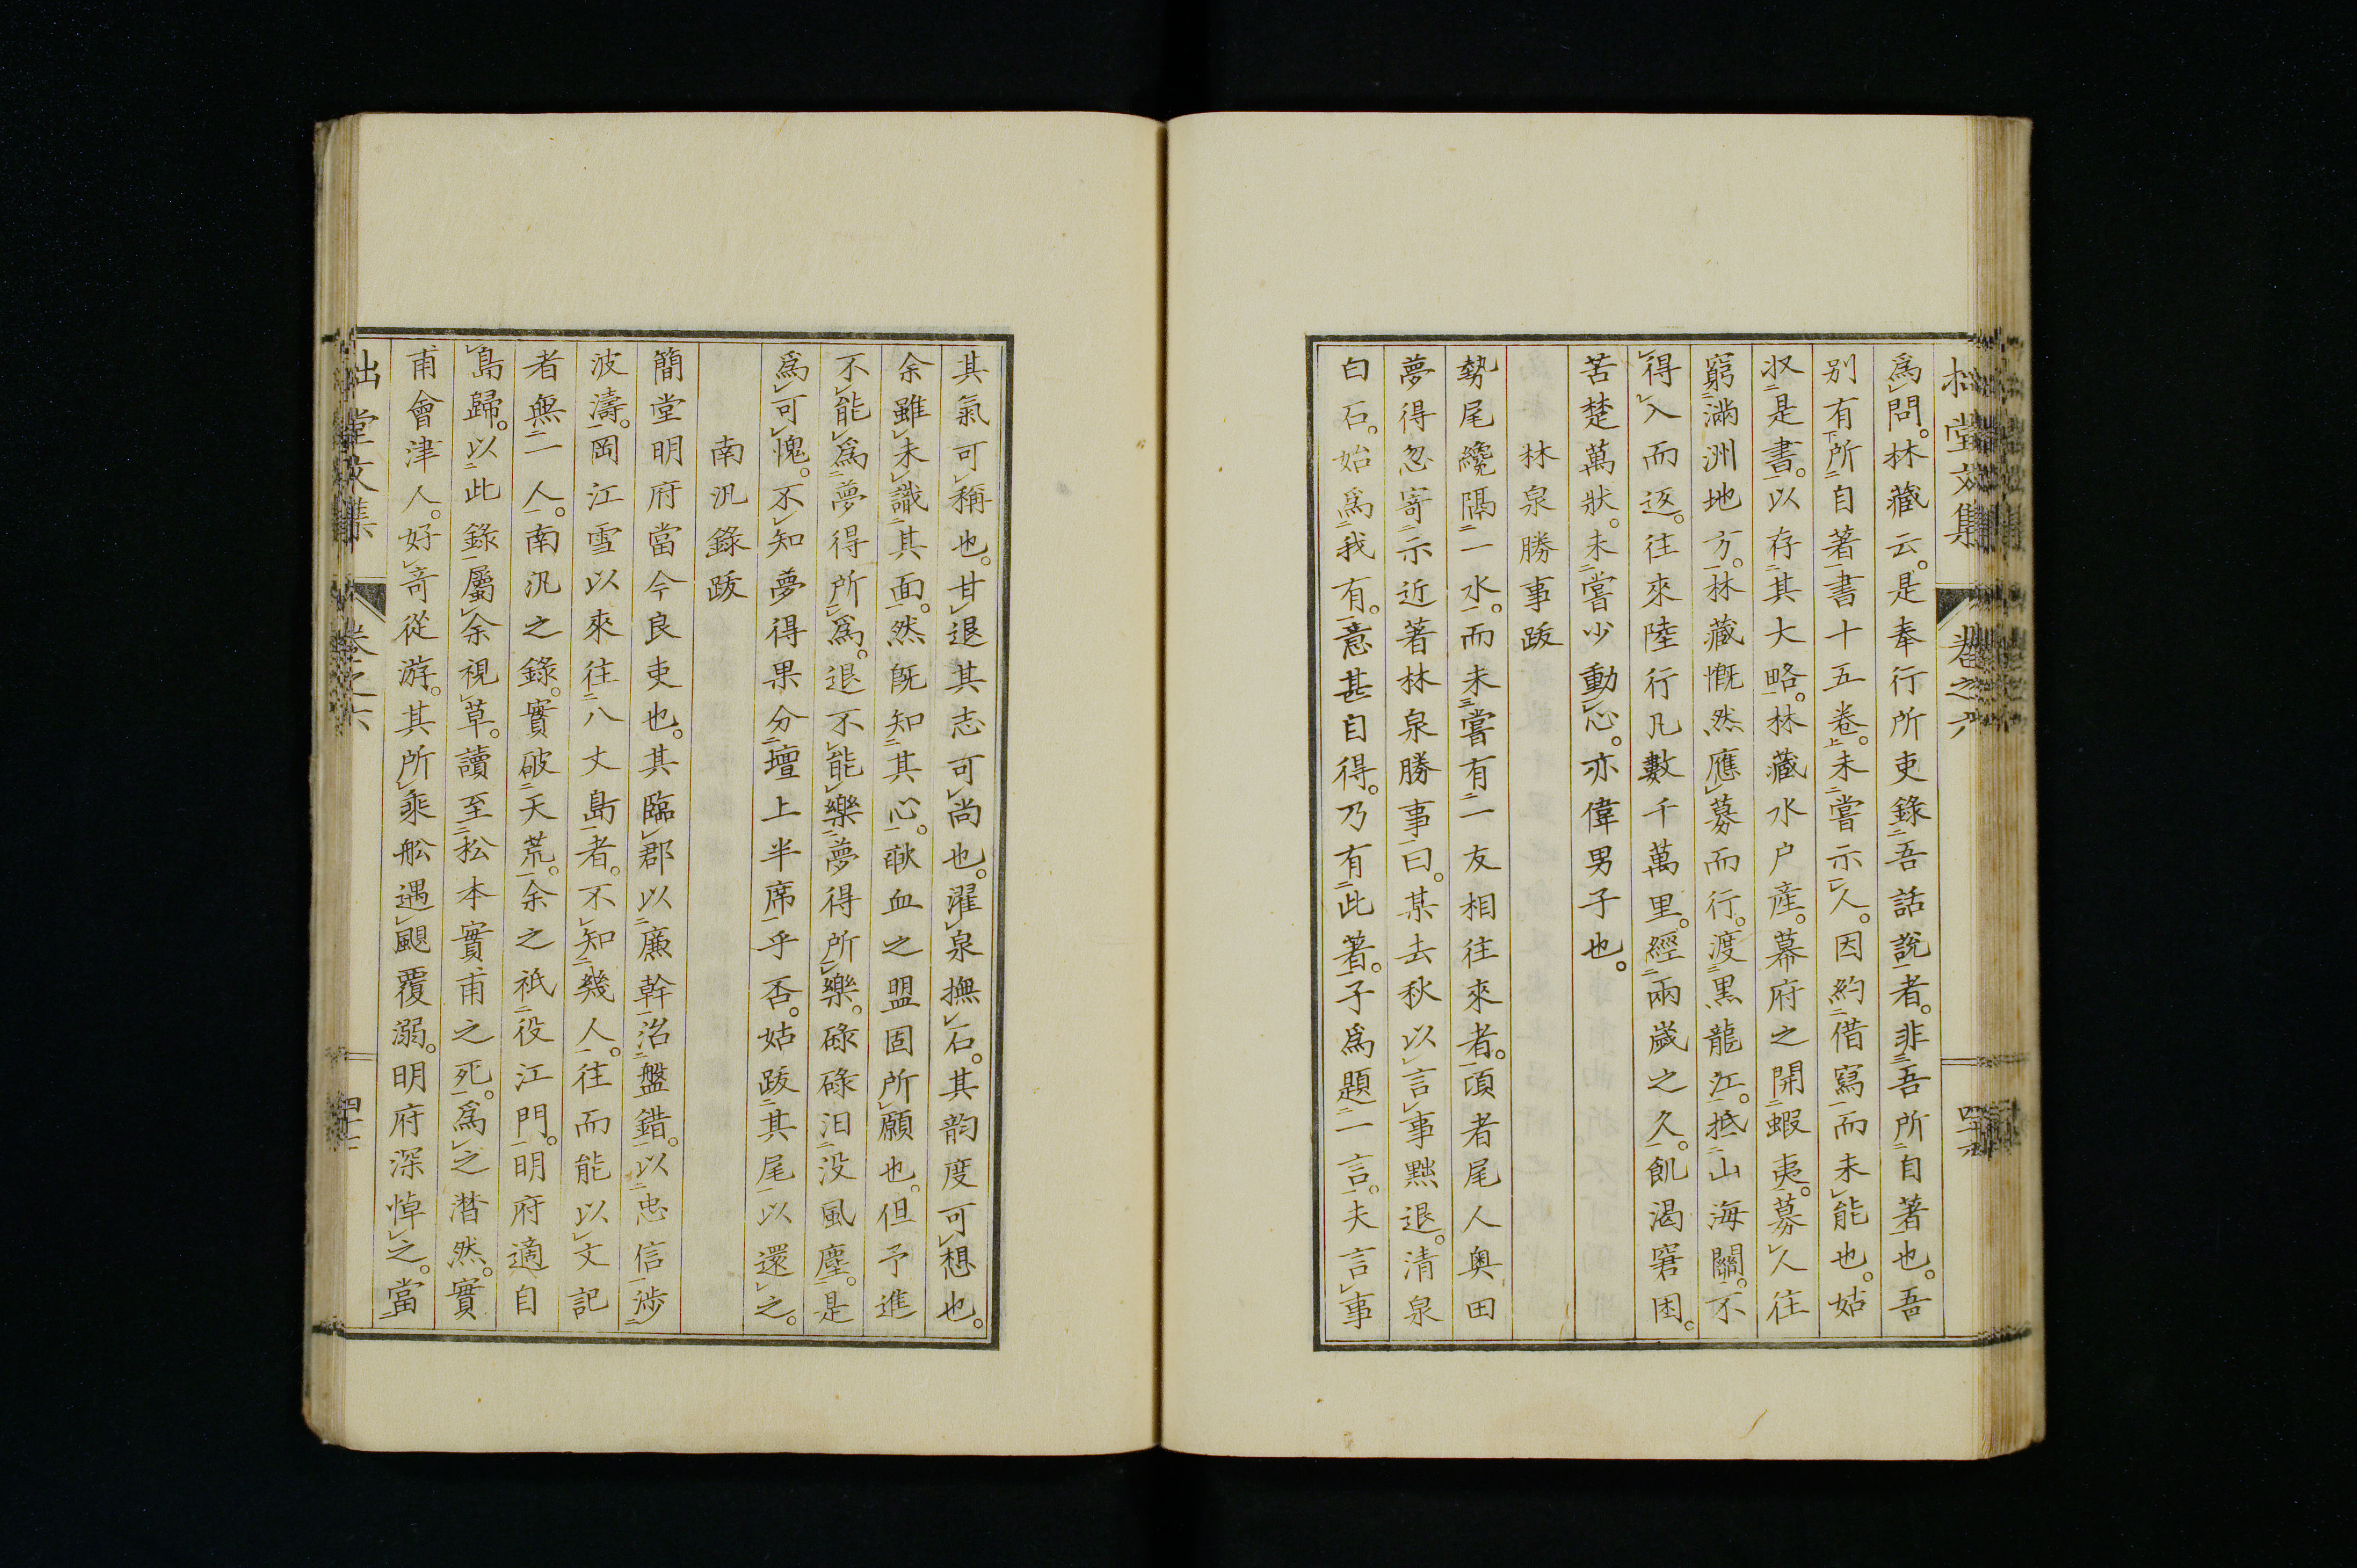 拙堂文集 卷之六 四十六
爲問。林藏云。是奉行所吏錄吾話說者。非吾所自著也。吾
別有所自著書十五卷。未嘗示人。因約借寫而未能也。姑
収是書。以存其大略。林藏水户產。幕府之開蝦夷。募人往
窮滿洲地方。林藏慨然應募而行。渡黑龍江。抵山海關。不
得入而返。往來陸行凡數千萬里。經兩歲之久。飢渴窘困。
苦楚萬狀。未嘗少動心。亦偉男子也。
林泉勝事跋
勢尾纔隔一水。而未嘗有一友相往來者。頃者尾人奧田
夢得忽寄示近著林泉勝事曰。某去秋以言事黜退。清泉
白石。始爲我有。意甚自得。乃有此著。子爲題一言。夫言事
其氣可稱也。甘退其志可尚也。濯泉撫石。其韵度可想也。
余雖未識其面。然既知其心。歃血之盟固所願也。但予進
不能爲夢得所爲。退不能樂夢得所樂。碌碌汩没風塵。是
爲可愧。不知夢得果分壇上半席乎否。姑跋其尾以還之。
南汎錄跋
簡堂明府當今良吏也。其臨郡以廉幹治盤錯。以忠信涉
波濤。岡江雪以來往八丈島者。不知幾人。往而能以文記
者無一人。南汎之錄。實破天荒。余之祇役江門。明府適自
島歸。以此錄屬余視草。讀至松本實甫之死。爲之潸然。實
甫會津人。好奇從游。其所乘舩遇颶覆溺。明府深悼之。當
拙堂文集 卷之六